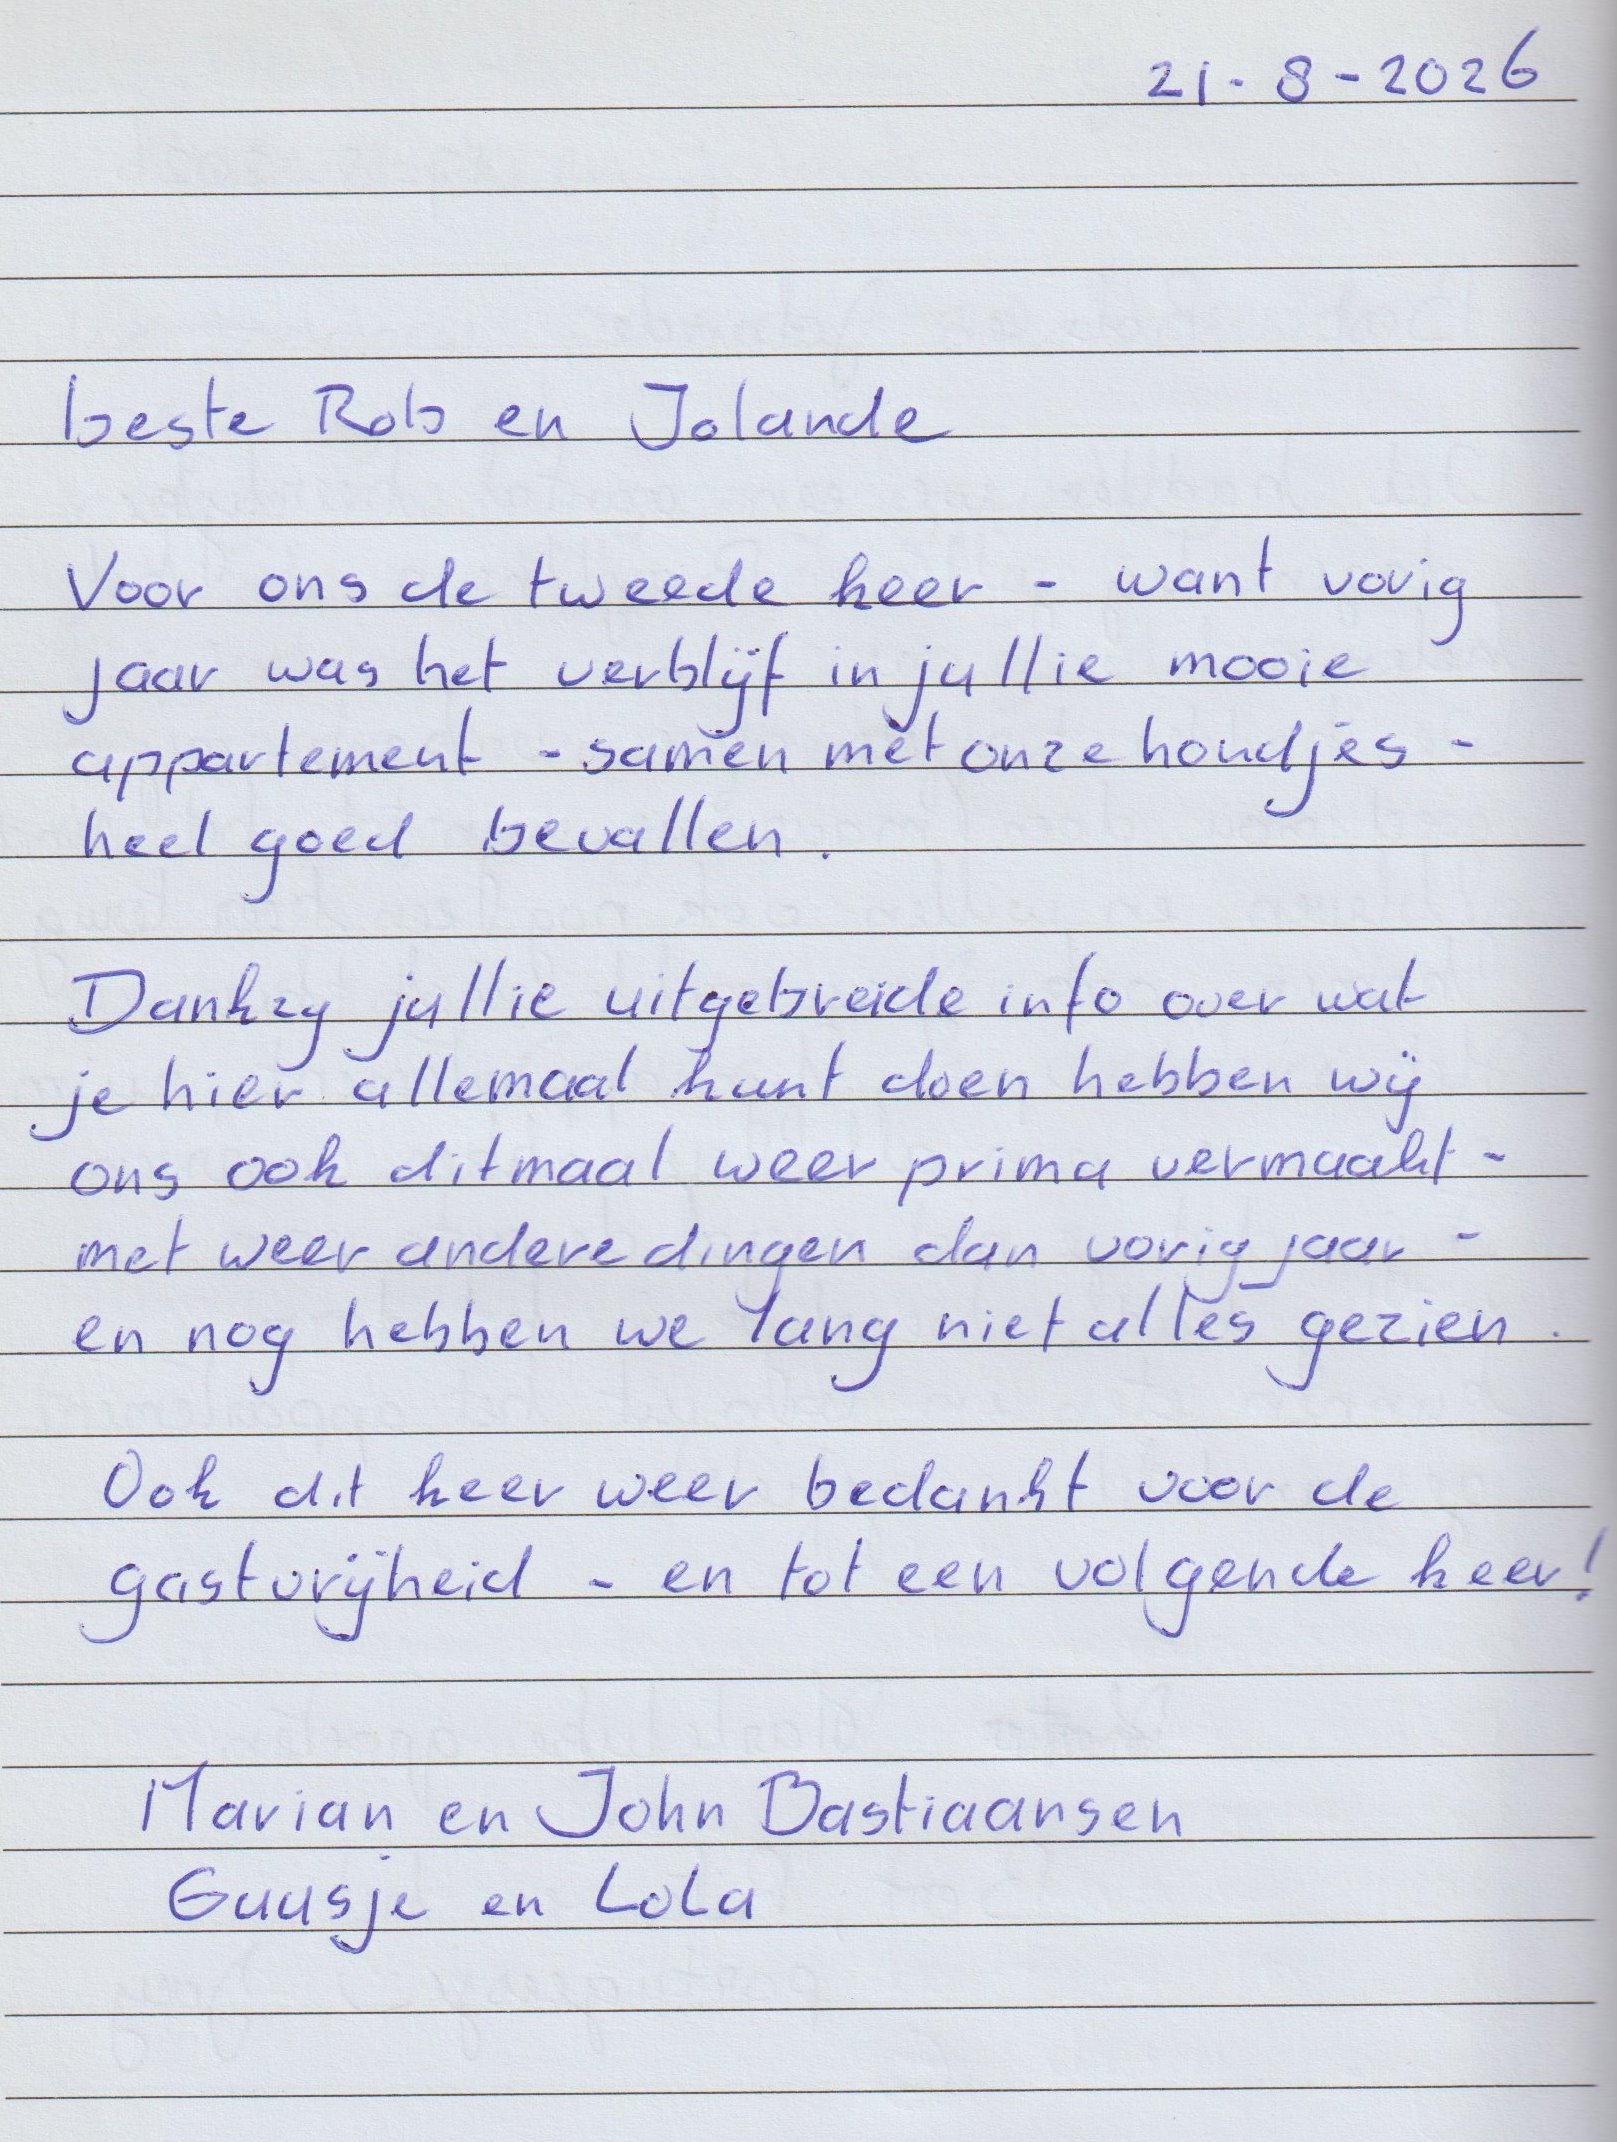 21-8-2026
beste Rob en Jolande
Voor ons de tweede keer - want vorig
jaar was het verblijf in jullie mooie
appartement - samen met onze hondjes -
heel goed bevallen.
Dankzy jullie uitgebreide info over wat
je hier allemaal kunt doen hebben wij
ons ook ditmaal weer prima vermaakt -
met weer andere dingen dan vorig jaar -
en nog hebben we lang niet alles gezien.
Ook dit keer weer bedankt voor de
gastvrijheid - en tot een volgende keer!
Marian en John Bastiaansen
Guusje en Lola